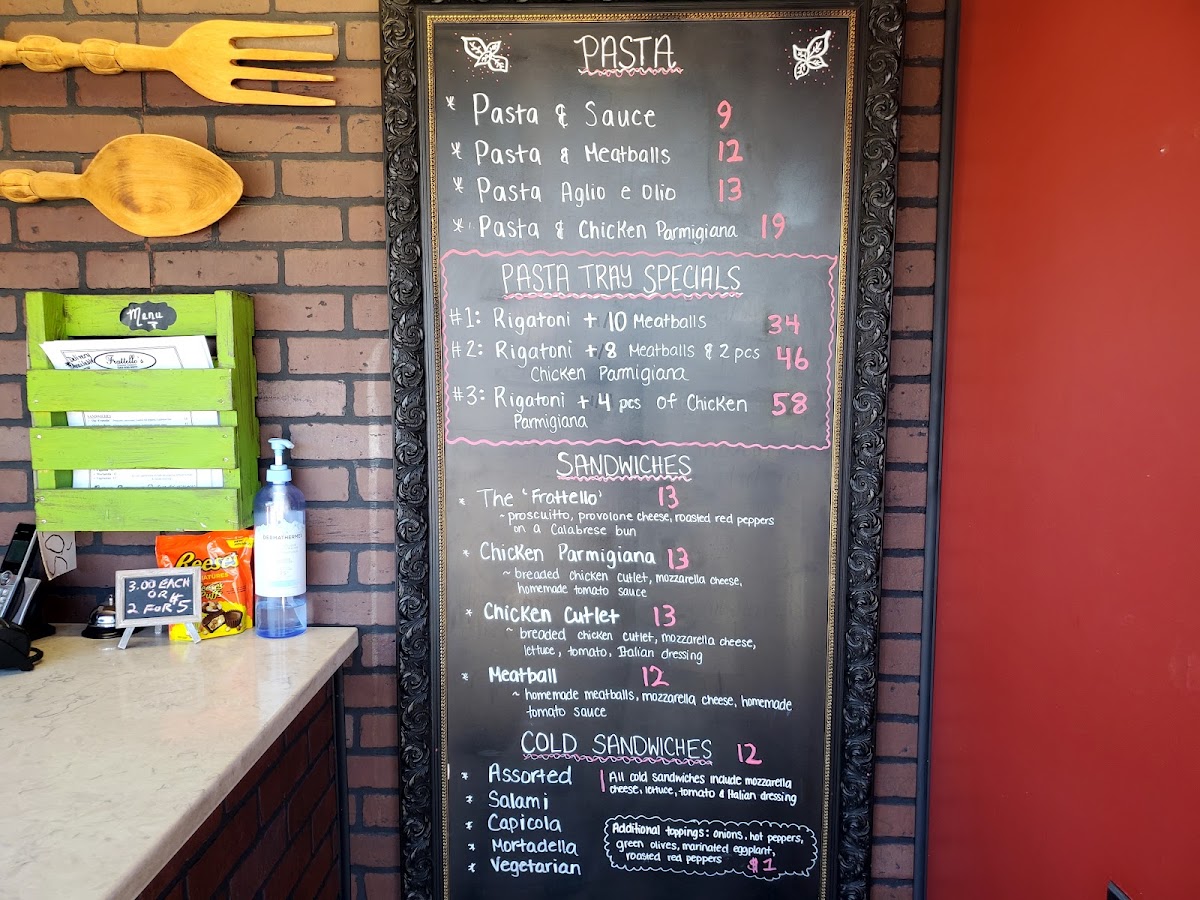 PASTA
* Pasta & Sauce 9
* Pasta & Meatballs 12
* Pasta Aglio e Olio 13
* Pasta & Chicken Parmigiana 19
PASTA TRAY SPECIALS
#1: Rigatoni + 10 Meatballs 34
#2: Rigatoni + 8 Meatballs & 2 pcs 46
Chicken Parmigiana
#3: Rigatoni + 4 pcs of Chicken 58
Parmigiana
SANDWICHES
* The 'Frattello' 13
~ proscuitto, provolone cheese, roasted red peppers
on a Calabrese bun
* Chicken Parmigiana 13
~ breaded chicken cutlet, mozzarella cheese,
homemade tomato sauce
* Chicken Cutlet 13
~ breaded chicken cutlet, mozzarella cheese,
lettuce, tomato, Italian dressing
* Meatball 12
~ homemade meatballs, mozzarella cheese, homemade
tomato sauce
COLD SANDWICHES 12
* Assorted
* Salami
* Capicola
* Mortadella
* Vegetarian
All cold sandwiches include mozzarella
cheese, lettuce, tomato & Italian dressing
Additional toppings: onions, hot peppers,
green olives, marinated eggplant,
roasted red peppers $1
Menu
Frattello's
Reese's
3.00 EACH
OR
2 FOR 5